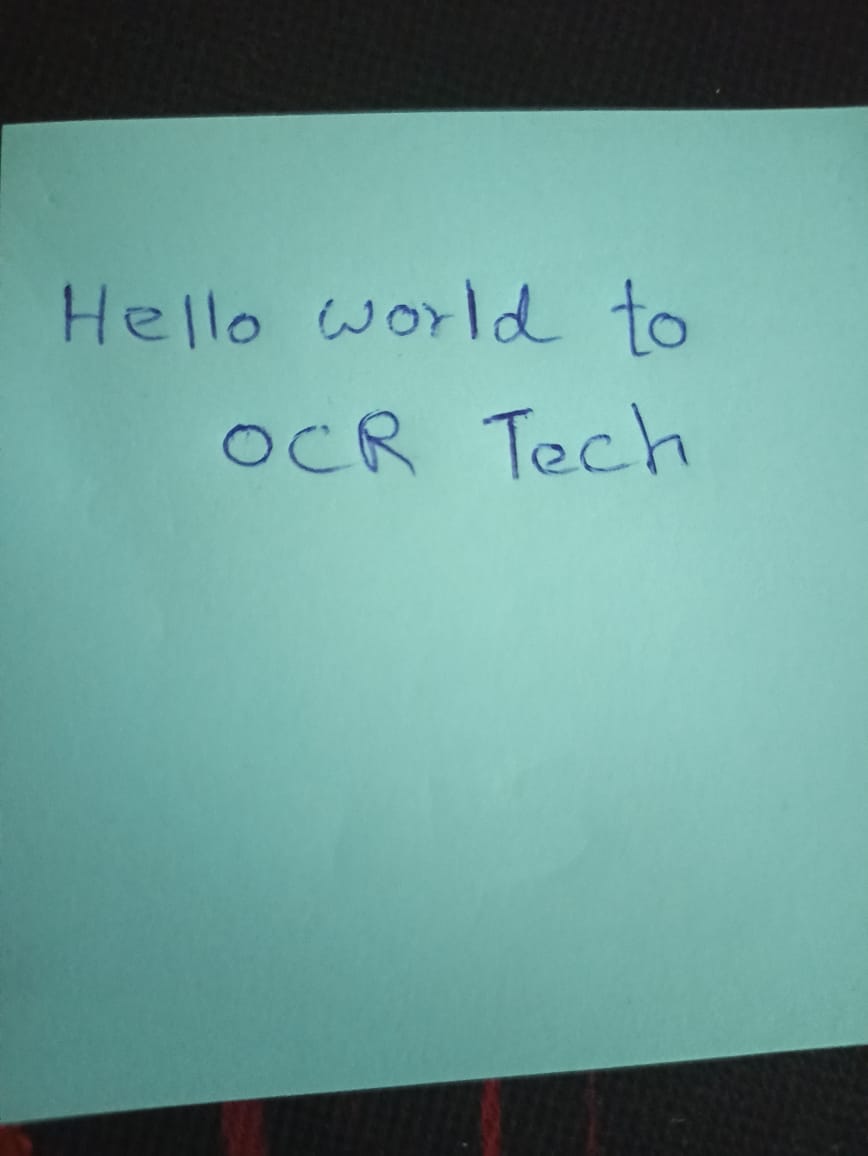 Hello world to
OCR Tech